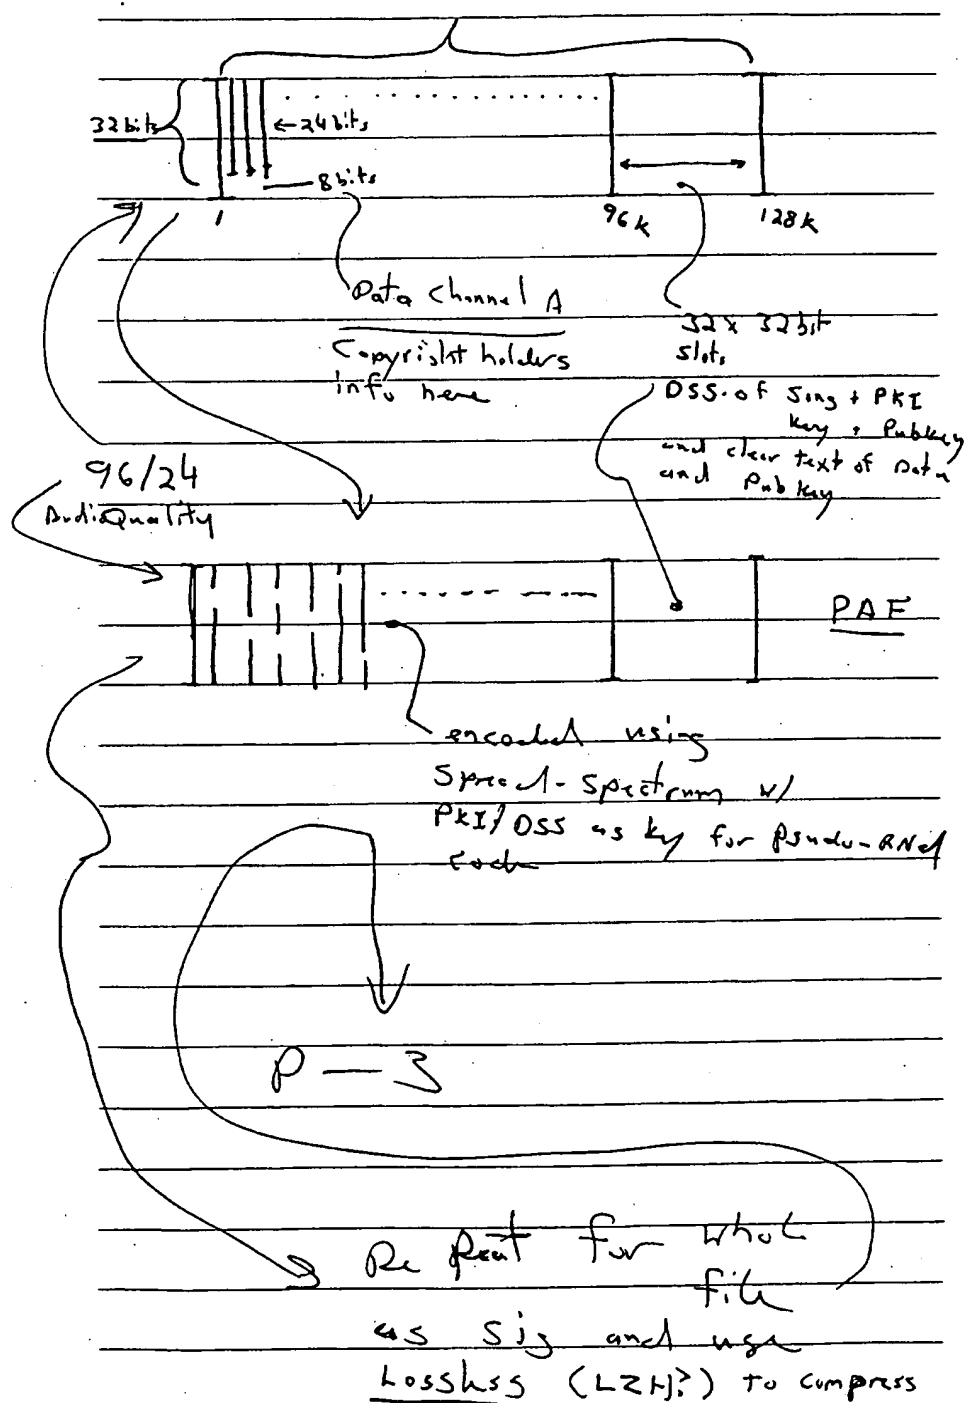 32 bits
← 24 bits
8 bits
1
96k
128k
Data Channel A
Copyright holders
info here
32 x 32 bit
slots
DSS of Song + PKI
key + Pubkey
and clear text of Data
and Pub key
96/24
AudioQuality
PAF
encoded using
Spread-Spectrum w/
PKI/DSS as key for Psudo-RNd
code
P — 3
Repeat for whole
file
as sig and use
Lossless (LZH?) to compress